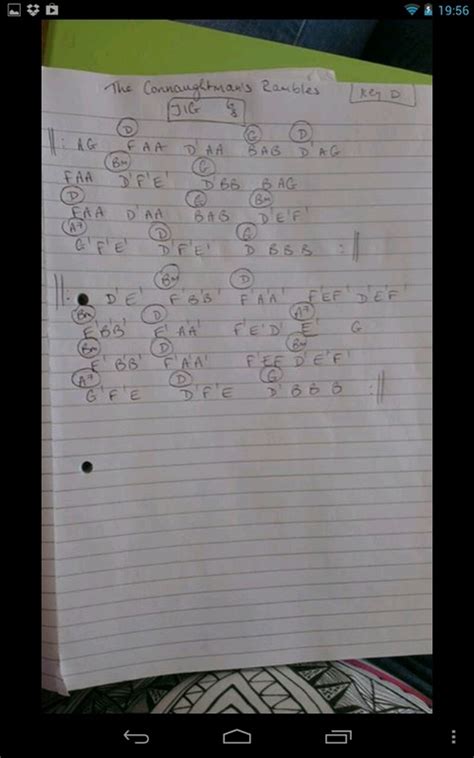 19:56
The Connaughtman's Rambles
Key D
JIG 6/8
D G D
||: AG FAA D'AA BAB D'AG
Bm G
FAA D'F'E' D'BB BAG
D G Bm
FAA D'AA BAB D'E'F'
A7 D G
G'F'E' D'F'E' D BBB :||
Bm D
||: D'E' F'B'B' F'A'A' F'EF' D'E'F'
Bm D A7
F'B'B' F'A'A' F'E'D' E' G
Bm D Bm
F'B'B' F'A'A' F'EE D'E'F'
A7 D G
G'F'E D'F'E D'BBB :||